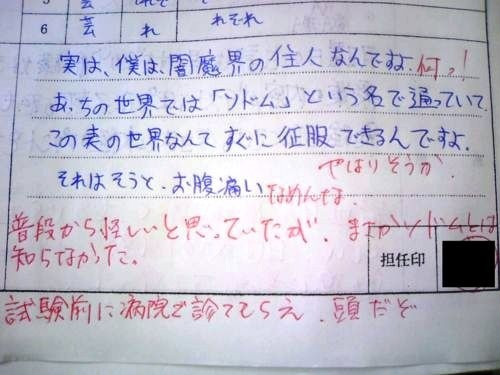 5 芸 れそ れそれ
6 芸 れ
実は、僕は、闇魔界の住人なんですよ。何っ!
あっちの世界では「ソドム」という名で通っていて
この表の世界なんてすぐに征服できるんですよ。
やはりそうか。
それはそうと、お腹痛い なめんなよ
普段から怪しいと思っていたが、まさかソドムとは
知らなかった。
担任印
試験前に病院で診てもらえ、頭だぞ